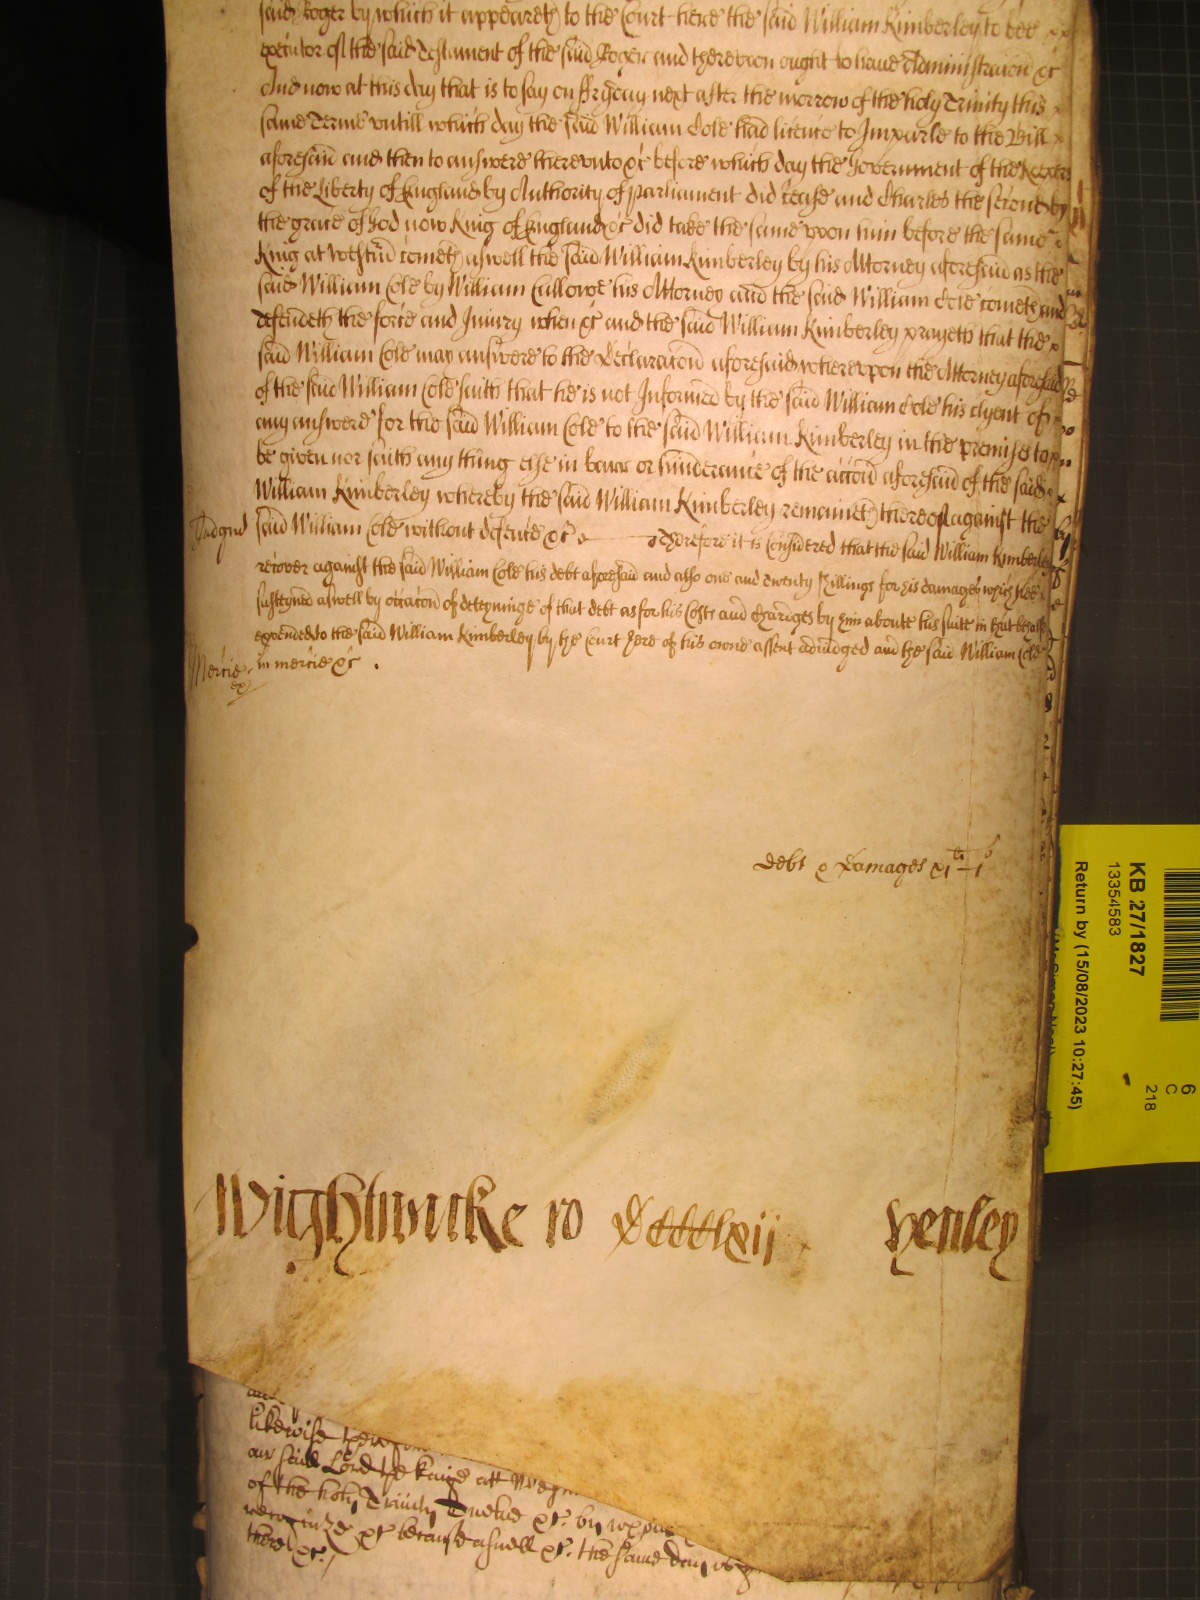 said Roger by which it appeareth to the Court here the said William Kimberley to bee
executor of the said Testament of the said Roger and thereupon ought to have Administracon &c
And now at this day that is to say on ffryday next after the morrow of the holy Trinity this
same Terme untill which day the said William Cole had licence to Imparle to the Bill
aforesaid and then to answere thereunto &c before which day the Government of the Keepers
of the Liberty of England by Authority of parliament did cease and Charles the second by
the grace of God now King of England &c did take the same upon him before the same
King at Westm cometh aswell the said William Kimberley by his Attorney aforesaid as the
said William Cole by William his Attorney and the said William Cole cometh and
defendeth the force and Injury when &c and the said William Kimberley prayeth that the
said William Cole may answere to the Declaracon aforesaid whereupon the Attorney aforesaid
of the said William Cole saith that he is not Informed by the said William Cole his clyent of
any answere for the said William Cole to the said William Kimberley in the premises to
be given nor saith any thing else in barr or hinderance of the accon aforesaid of the said
William Kimberley whereby the said William Kimberley remaineth thereof against the
Judgmt said William Cole without defence &c Therefore it is Considered that the said William Kimberley
recover against the said William Cole his debt aforesaid and also one and twenty shillings for his damages which hee
susteyned aswell by occacon of deteyninge of that debt as for his Costs and Chardges by him aboute his suite in that behalfe
expended to the said William Kimberley by the Court here of his owne assent adiudged and the said William Cole
Mercie in mercie &c
debt & damages xi li i s
Wightwicke ro Dcccclxii Henley
likewise
our said Lord the Kinge att
of the holy Trinity &c. by
recognize &c because aswell &c. the same day is
there &c.
KB 27/1827
13354583
Return by (15/08/2023 10:27:45)
6
C
218